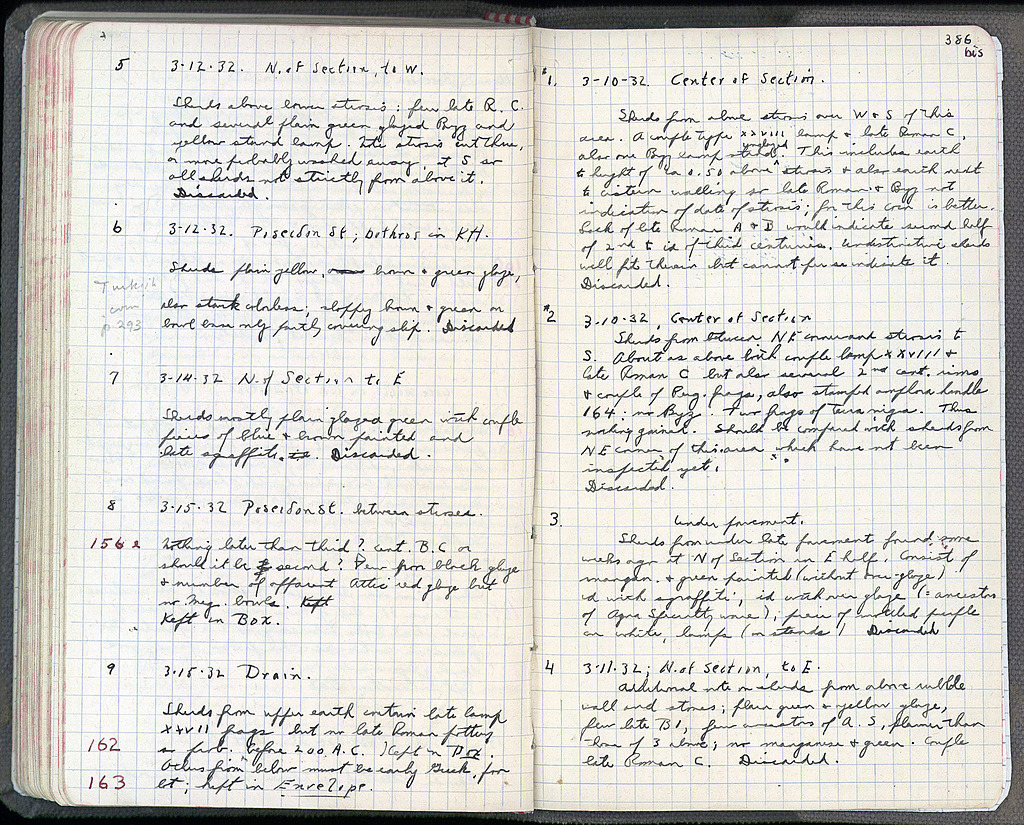 5 3-12-32. N. of Section, to W.
Sherds above lower strosis: few late R. C.
and several plain green glazed Byz and
yellow stand lamp. Late strosis cut thru,
or more probably washed away, at S so
all sherds not strictly from above it.
Discarded.
6 3-12-32. Poseidon St; bothros in KH.
Sherds plain yellow, brown + green glaze,
Turkish
also stark colorless; sloppy brown + green on
coin
p. 293
bowl base only partly covering slip. Discarded
7 3-14-32 N. of Section to E
Sherds mostly plain glazed green with couple
pieces of blue + brown painted and
late sgraffito. Discarded.
8 3-15-32 Poseidon St. between stroses.
156
Nothing later than third? cent. B.C or
should it be second? Few poor black glaze
+ number of apparent Attic red glaze but
no Meg. bowls. Kept
Kept in Box.
9 3-15-32 Drain.
Sherds from upper earth contain late lamp
XXVII frags but no late Roman pottery
162
so prob. before 200 A.C. Kept in Box.
Others from below must be early Greek, poor
163
lot; kept in Envelope.
386
bis
1. 3-10-32. Center of Section.
Sherds from above strosis over W + S of this
area. A couple type XXVIII lamp + late Roman C,
unglazed
also one Byz lamp stand. This includes earth
to height of ca 0.50 above strosis + also earth next
to cistern walling so late Roman + Byz not
indication of date of strosis; for this coin is better.
Lack of late Roman A + B would indicate second half
of 2nd to id of third centuries. Undistinctive sherds
well fit therein but cannot per se indicate it.
Discarded.
2 3-10-32, Center of Section
Sherds from between NE corner and strosis to
S. About as above both couple lamp XXVIII +
late Roman C but also several 2nd cent. rims
+ couple of Perg. frags, also stamped amphora handle
164: no Byz. Two frags of Terra nigra. Thus
nothing gained. Should be compared with sherds from
NE corner of this area which have not been
inspected yet.
Discarded.
3. Under pavement.
Sherds from under late pavement found some
weeks ago at N of Section in E half. Consist of
mangan. + green painted (without over-glaze)
id with sgraffiti, id with over glaze (= ancestors
of Agora Specialty ware); piece of mottled purple
on white, lamps (on stands) Discarded
4 3-11-32; N. of Section, to E.
Additional note on sherds from above rubble
wall and stones; plain green + yellow glaze,
few late B1, few ancestors of A. S, plainer than
those of 3 above; no manganese + green. Couple
late Roman C. Discarded.